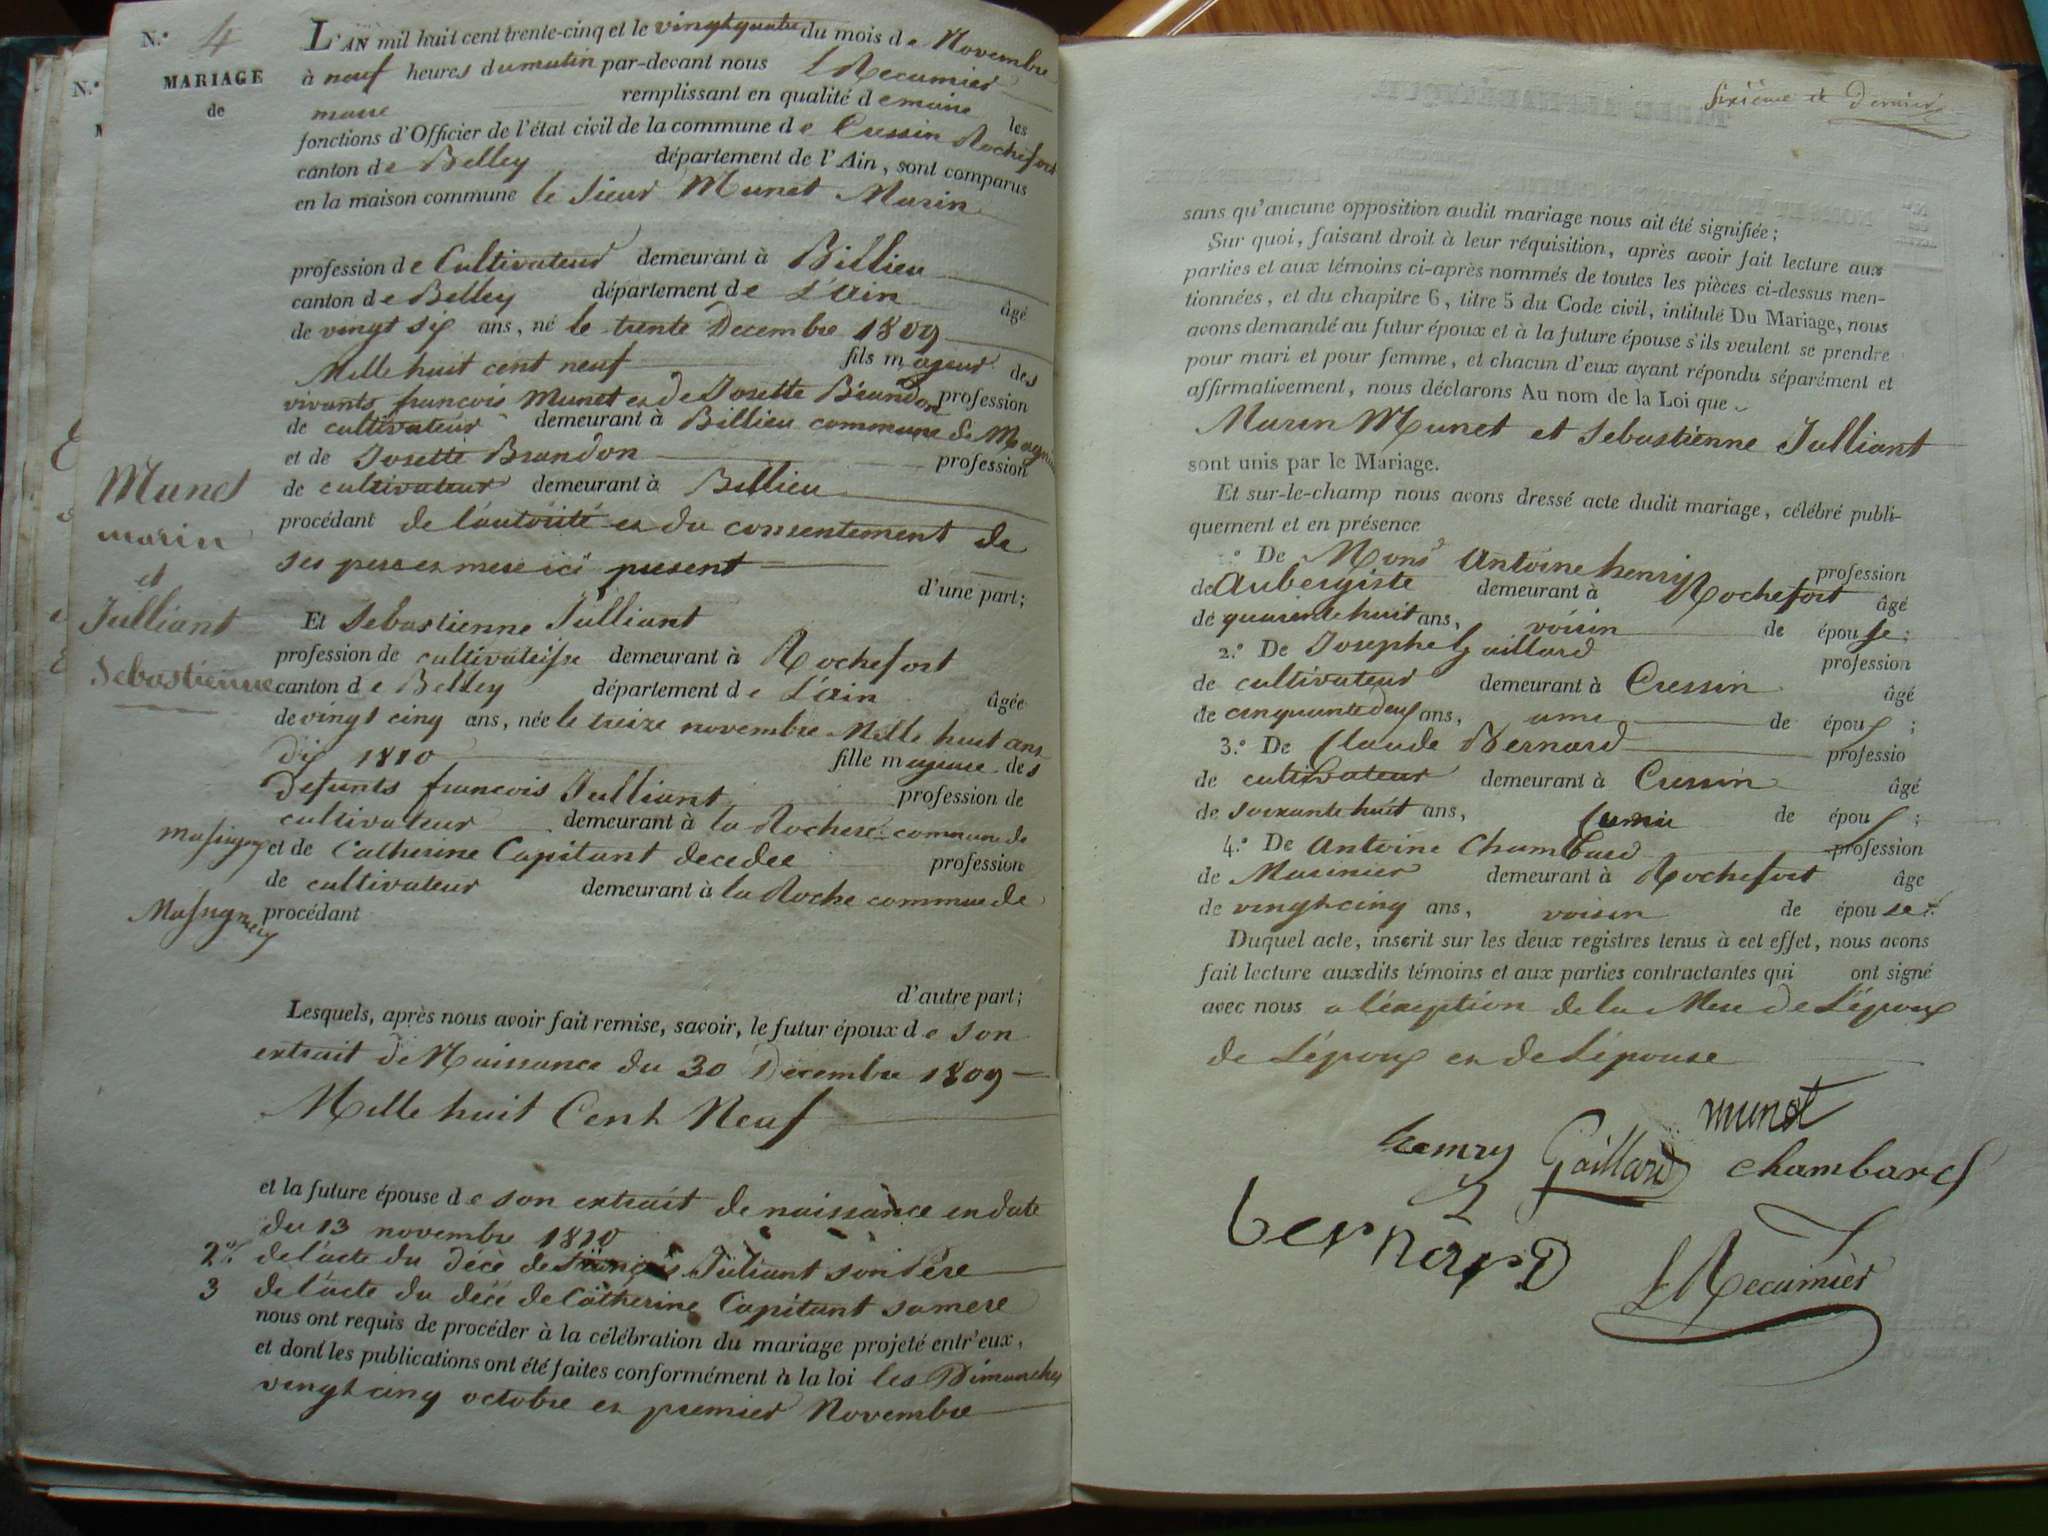 N.º 4
MARIAGE
de
L'AN mil huit cent trente-cinq et le vingt quatre du mois de Novembre
à neuf heures du matin par-devant nous L Recamier
maire remplissant en qualité de maire les
fonctions d'Officier de l'état civil de la commune de Cressin Rochefort
canton de Belley département de l'Ain, sont comparus
en la maison commune le Sieur Munet Marin
profession de Cultivateur demeurant à Billieu
canton de Belley département de L'ain âgé
de vingt six ans, né le trente Decembre 1809
Mille huit cent neuf fils majeur des
vivants francois Munet et de Josette Brandon profession
de cultivateur demeurant à Billieu commune de
et de Josette Brandon profession
de cultivateur demeurant à Billieu
procédant de l'autorité et du consentement de
ses pere et mere ici present
d'une part;
Munet
marin
et
Julliant
Sebastienne
Et Sebastienne Julliant
profession de cultivateisse demeurant à Rochefort
canton de Belley département de L'ain âgée
de vingt cinq ans, née le treize novembre Mille huit ans
dix 1810 fille majeure des
Defunts francois Julliant profession de
cultivateur demeurant à la Rochere commune de
Massigny et de Catherine Capitant decedee profession
de cultivateur demeurant à la Roche commune de
Massigny procédant
d'autre part;
Lesquels, après nous avoir fait remise, savoir, le futur époux de son
extrait de Naissance du 30 Decembre 1809
Mille huit Cent Neuf
et la future épouse de son extrait de naissance en date
du 13 novembre 1810
2º de l'acte du décè de François Juliant son Père
3 de l'acte du décé de Catherine Capitant sa mere
nous ont requis de procéder à la célébration du mariage projeté entr'eux,
et dont les publications ont été faites conformément à la loi les Dimanches
vingt cinq octobre et premier Novembre
sixième et dernier
sans qu'aucune opposition audit mariage nous ait été signifiée;
Sur quoi, faisant droit à leur réquisition, après avoir fait lecture aux
parties et aux témoins ci-après nommés de toutes les pièces ci-dessus men-
tionnées, et du chapitre 6, titre 5 du Code civil, intitulé Du Mariage, nous
avons demandé au futur époux et à la future épouse s'ils veulent se prendre
pour mari et pour femme, et chacun d'eux ayant répondu séparément et
affirmativement, nous déclarons Au nom de la Loi que
Marin Munet et Sebastienne Julliant
sont unis par le Mariage.
Et sur-le-champ nous avons dressé acte dudit mariage, célébré publi-
quement et en présence
1.º De Mons.r Antoine henry profession
de Aubergiste demeurant à Rochefort âgé
de quarente huit ans, voisin de épouse;
2.º De Joseph Gaillard profession
de cultivateur demeurant à Cressin âgé
de cinquante deux ans, ami de époux;
3.º De Claude Bernard professio
de cultivateur demeurant à Cressin âgé
de soixante huit ans, l'amie de époux;
4.º De Antoine Chambard profession
de Marinier demeurant à Rochefort âge
de vingt cinq ans, voisin de épouse.
Duquel acte, inscrit sur les deux registres tenus à cet effet, nous avons
fait lecture auxdits témoins et aux parties contractantes qui ont signé
avec nous a l'éxeption de la Mere de L'époux
de L'époux et de L'épouse
munet
hemry Gaillard chambard
bernard
L Recamier